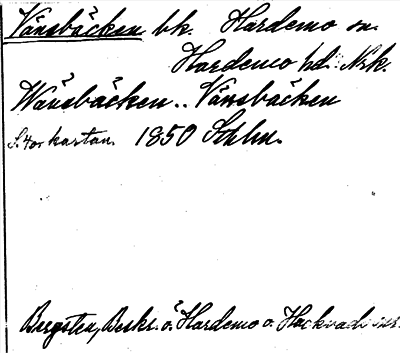 Vänsbäcken bk. Hardemo sn.
Hardemo hd. Nrk.
Wänsbäcken.. Vänsbäcken
kartan. 1850 Sthlm.
Bergsten, Beskr. ö. Hardemo o. Hackvads snr.